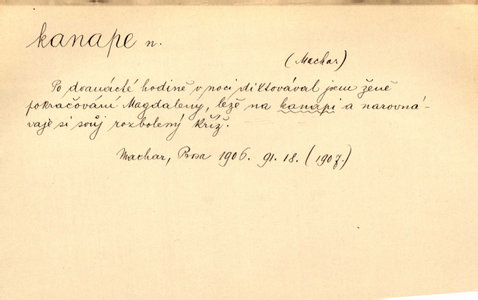 kanape n.
(Machar)
Po dvanácté hodině v noci diktovával jsem ženě
pokračování Magdaleny, leže na kanapi a narovná-
vaje si svůj rozbolený kříž.
Machar, Prosa 1906. 91. 18. (1907.)